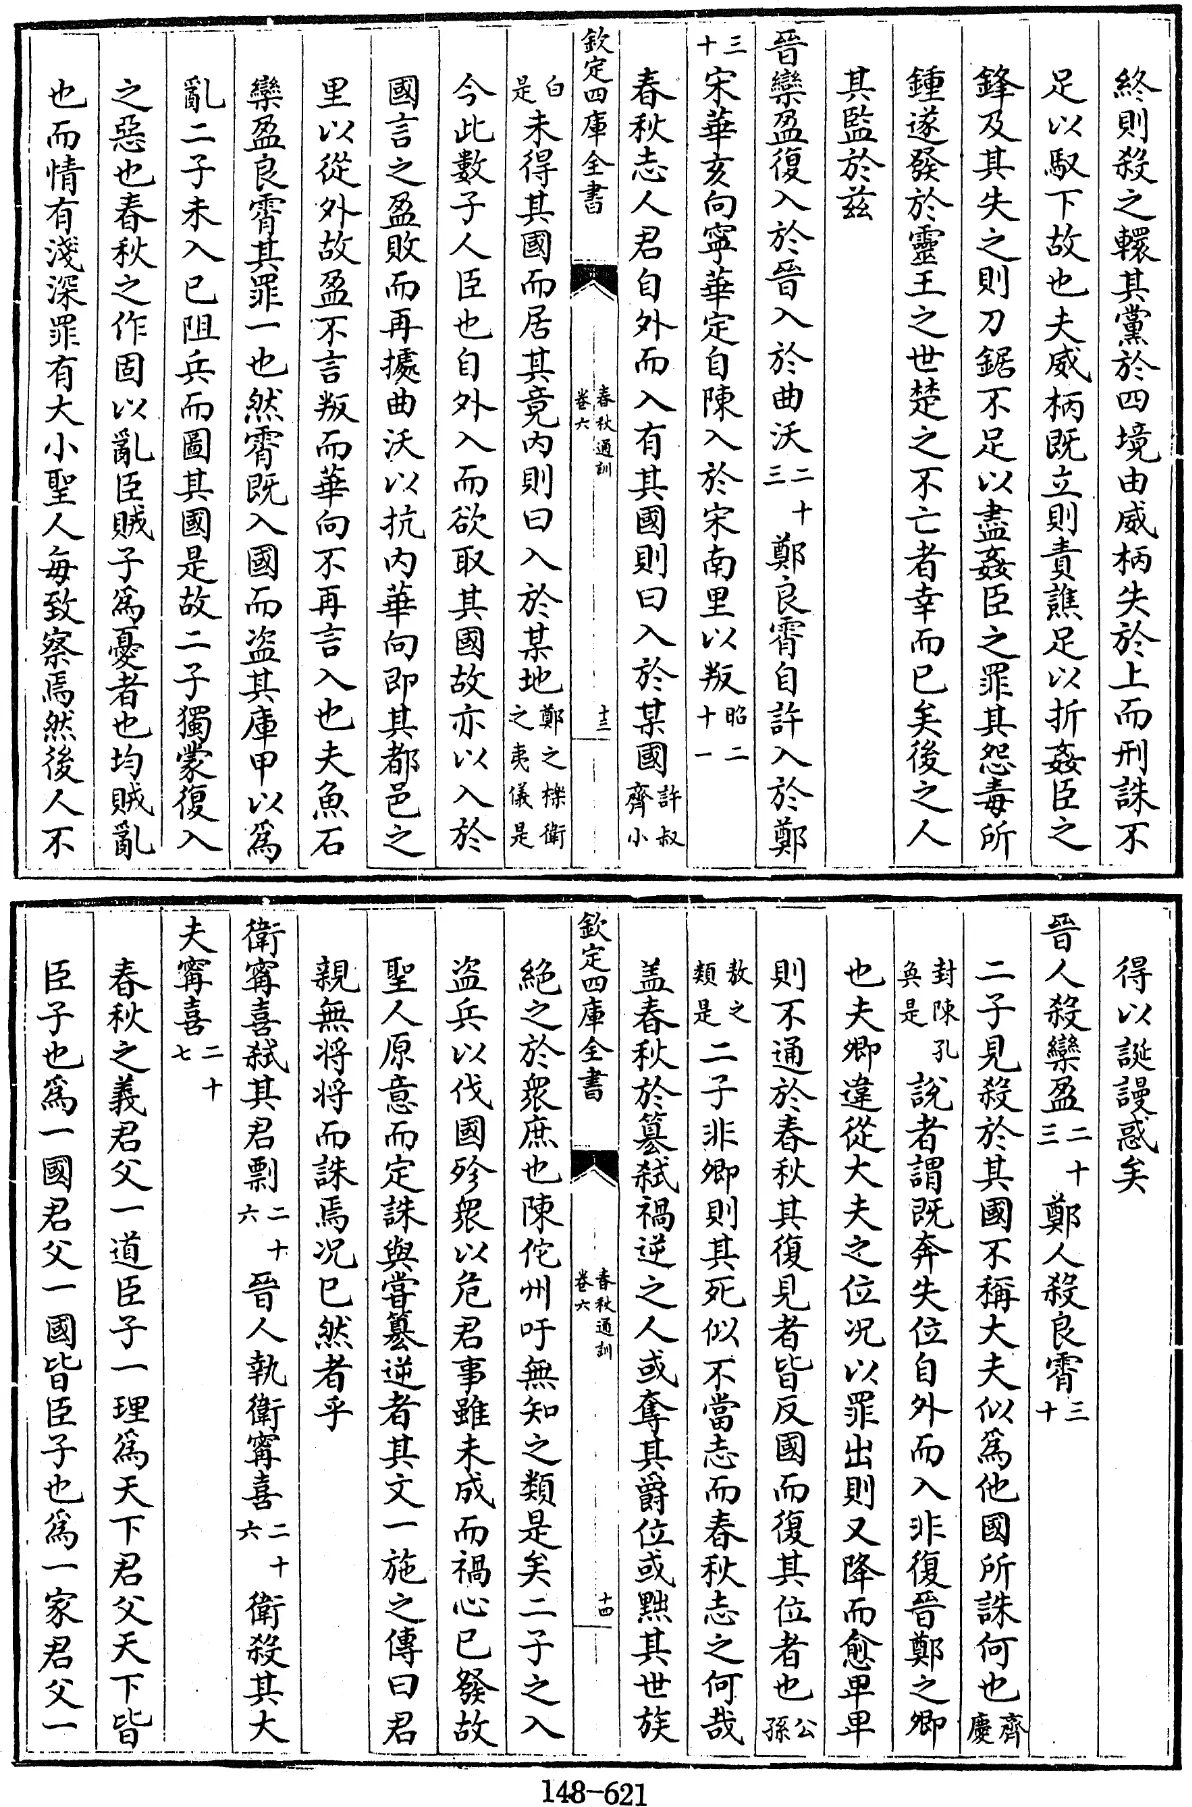 終則殺之轘其黨於四境由威柄失於上而刑誅不
足以馭下故也夫威柄既立則責譙足以折姦臣之
鋒及其失之則刀鋸不足以盡姦臣之罪其怨毒所
鍾遂發於靈王之世楚之不亡者幸而已矣後之人
其監於兹
晉欒盈復入於晉入於曲沃二十三鄭良霄自許入於鄭
三十宋華亥向寧華定自陳入於宋南里以叛昭二十一
春秋志人君自外而入有其國則曰入於某國許叔齊小
欽定四庫全書 春秋通訓 卷六 十三
白是未得其國而居其竟内則曰入於某地鄭之櫟衛之夷儀是
今此數子人臣也自外入而欲取其國故亦以入於
國言之盈敗而再據曲沃以抗内華向即其都邑之
里以從外故盈不言叛而華向不再言入也夫魚石
欒盈良霄其罪一也然霄既入國而盗其庫甲以爲
亂二子未入已阻兵而圖其國是故二子獨蒙復入
之惡也春秋之作固以亂臣賊子爲憂者也均賊亂
也而情有淺深罪有大小聖人每致察焉然後人不
得以誕謾惑矣
晉人殺欒盈二十三鄭人殺良霄三十
二子見殺於其國不稱大夫似爲他國所誅何也齊慶
封陳孔奐是說者謂既奔失位自外而入非復晉鄭之卿
也夫卿違從大夫之位况以罪出則又降而愈卑卑
則不通於春秋其復見者皆反國而復其位者也公孫
敖之類是二子非卿則其死似不當志而春秋志之何哉
盖春秋於簒弑禍逆之人或奪其爵位或黜其世族
欽定四庫全書 春秋通訓 卷六 十四
絶之於衆庶也陳佗州吁無知之類是矣二子之入
盗兵以伐國殄衆以危君事雖未成而禍心已發故
聖人原意而定誅與嘗簒逆者其文一施之傳曰君
親無将将而誅焉况已然者乎
衛甯喜弑其君剽二十六晉人執衛甯喜二十六衛殺其大
夫甯喜二十七
春秋之義君父一道臣子一理爲天下君父天下皆
臣子也爲一國君父一國皆臣子也爲一家君父一
148-621